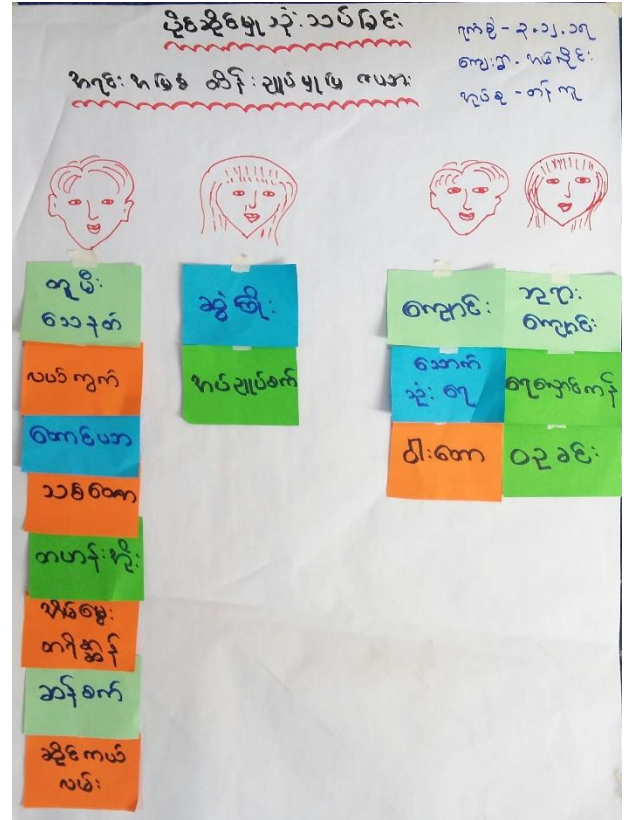 ပိုင်ဆိုင်မှုသုံးသပ်ခြင်း
အရင်းအမြစ် ထိန်းချုပ်မှုပြ ဇယား
ရက်စွဲ - ၃.၁၂.၁၇
ကျေးရွာ -
အုပ်စု -
တူမီး
သေနတ်
လယ်ကွက်
တောင်ယာ
သစ်တော
တယာန်းဟိုး
အိမ်မွေး
တိရိစ္ဆာန်
ဆန်စက်
ဆိုင်ကယ်
လမ်း
ဆွဲကြိုး
အပ်ချုပ်စက်
ကျောင်း
သောက်
သုံးရေ
ဝါးတော
ဘုရား
ကျောင်း
ရေလှောင်ကန်
ဝဥခင်း